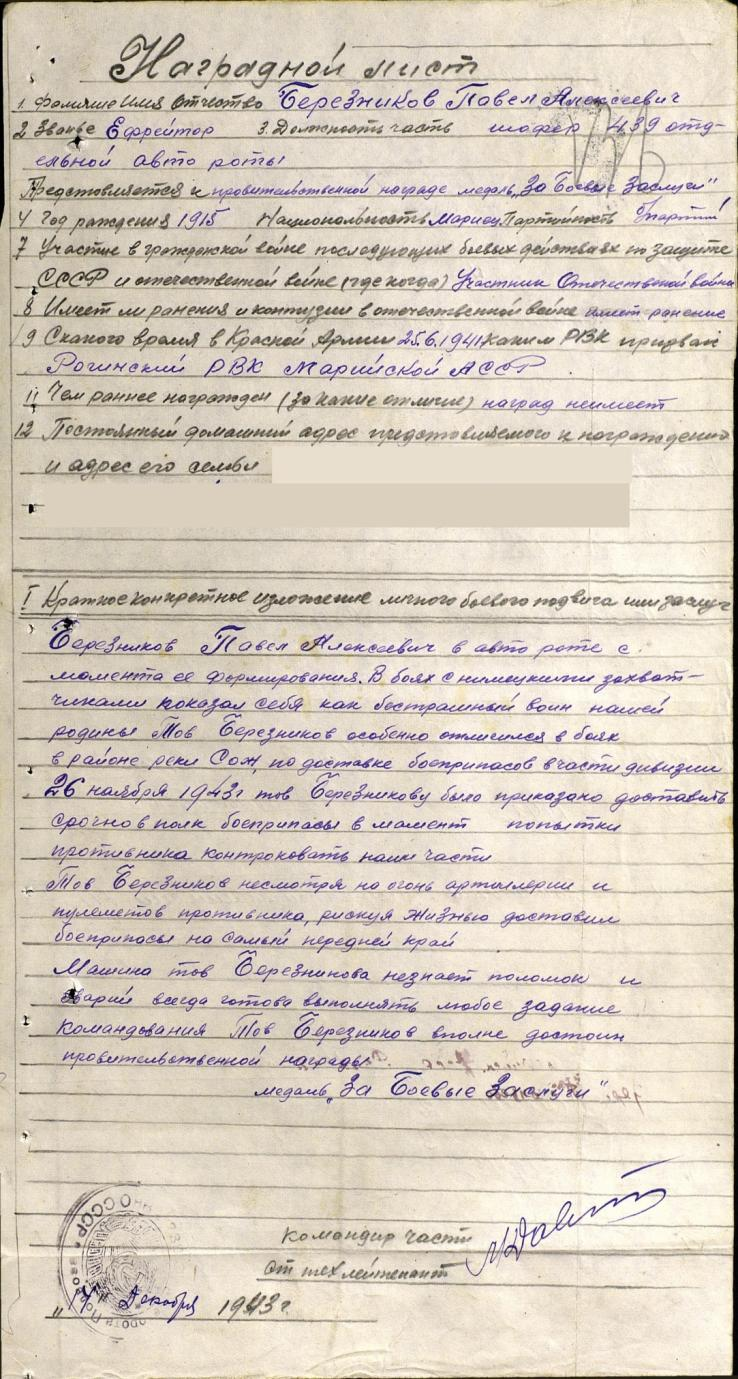 Наградной лист
1. Фамилие Имя Отчество Березников Павел Алексеевич
2 Званье Ефрейтор 3. Должность часть шофер 439 отд-
ельной авто роты
Предстовляется к провительственной награде медаль „За Боевые Заслуги"
4 Год рождения 1915 Национольность Мариец Партийность
7 Участие в гражданской войне последующих боевых действиях по защите
СССР и отечественной войне (где когда) Участник Отечественой войны
8 Имеет ли ранения и контузии в отечественной войне имеет ранение
9 Скакого время в Красной Армии 25.6.1941 каким РВК призван
Рогинский РВК Марийской АССР
11 Чем раннее награжден (за какие отличие) наград неимеет
12 Постоянный домашний адрес предстовляемого к награждению
и адрес его семьи
I Краткое конкретное изложение личного боевого подвига или заслуг
Березников Павел Алексеевич в авто роте с
момента ее формирования. В боях с немецкими захват-
чиками показал себя как бесстрашный воин нашей
родины Тов Березников особенно отличился в боях
в районе реки Сож, по доставке боеприпасов в части дивизии
26 наября 1943г тов Березникову было приказано доставить
срочно в полк боеприпасы в мамент попытки
противника контроковать наши части
Тов Березников несмотря на огонь артиллерии и
пулеметов противника, рискуя жизнью доставил
боеприпасы на самый передней край
Машина тов Березникова незнает поломок и
аварий всегда готова выполнять любое задание
командования Тов Березников вполне достоин
провительственной награды
медаль „За Боевые Заслуги"
Командир части
ст тех лейтенант
Декабря 1943 г